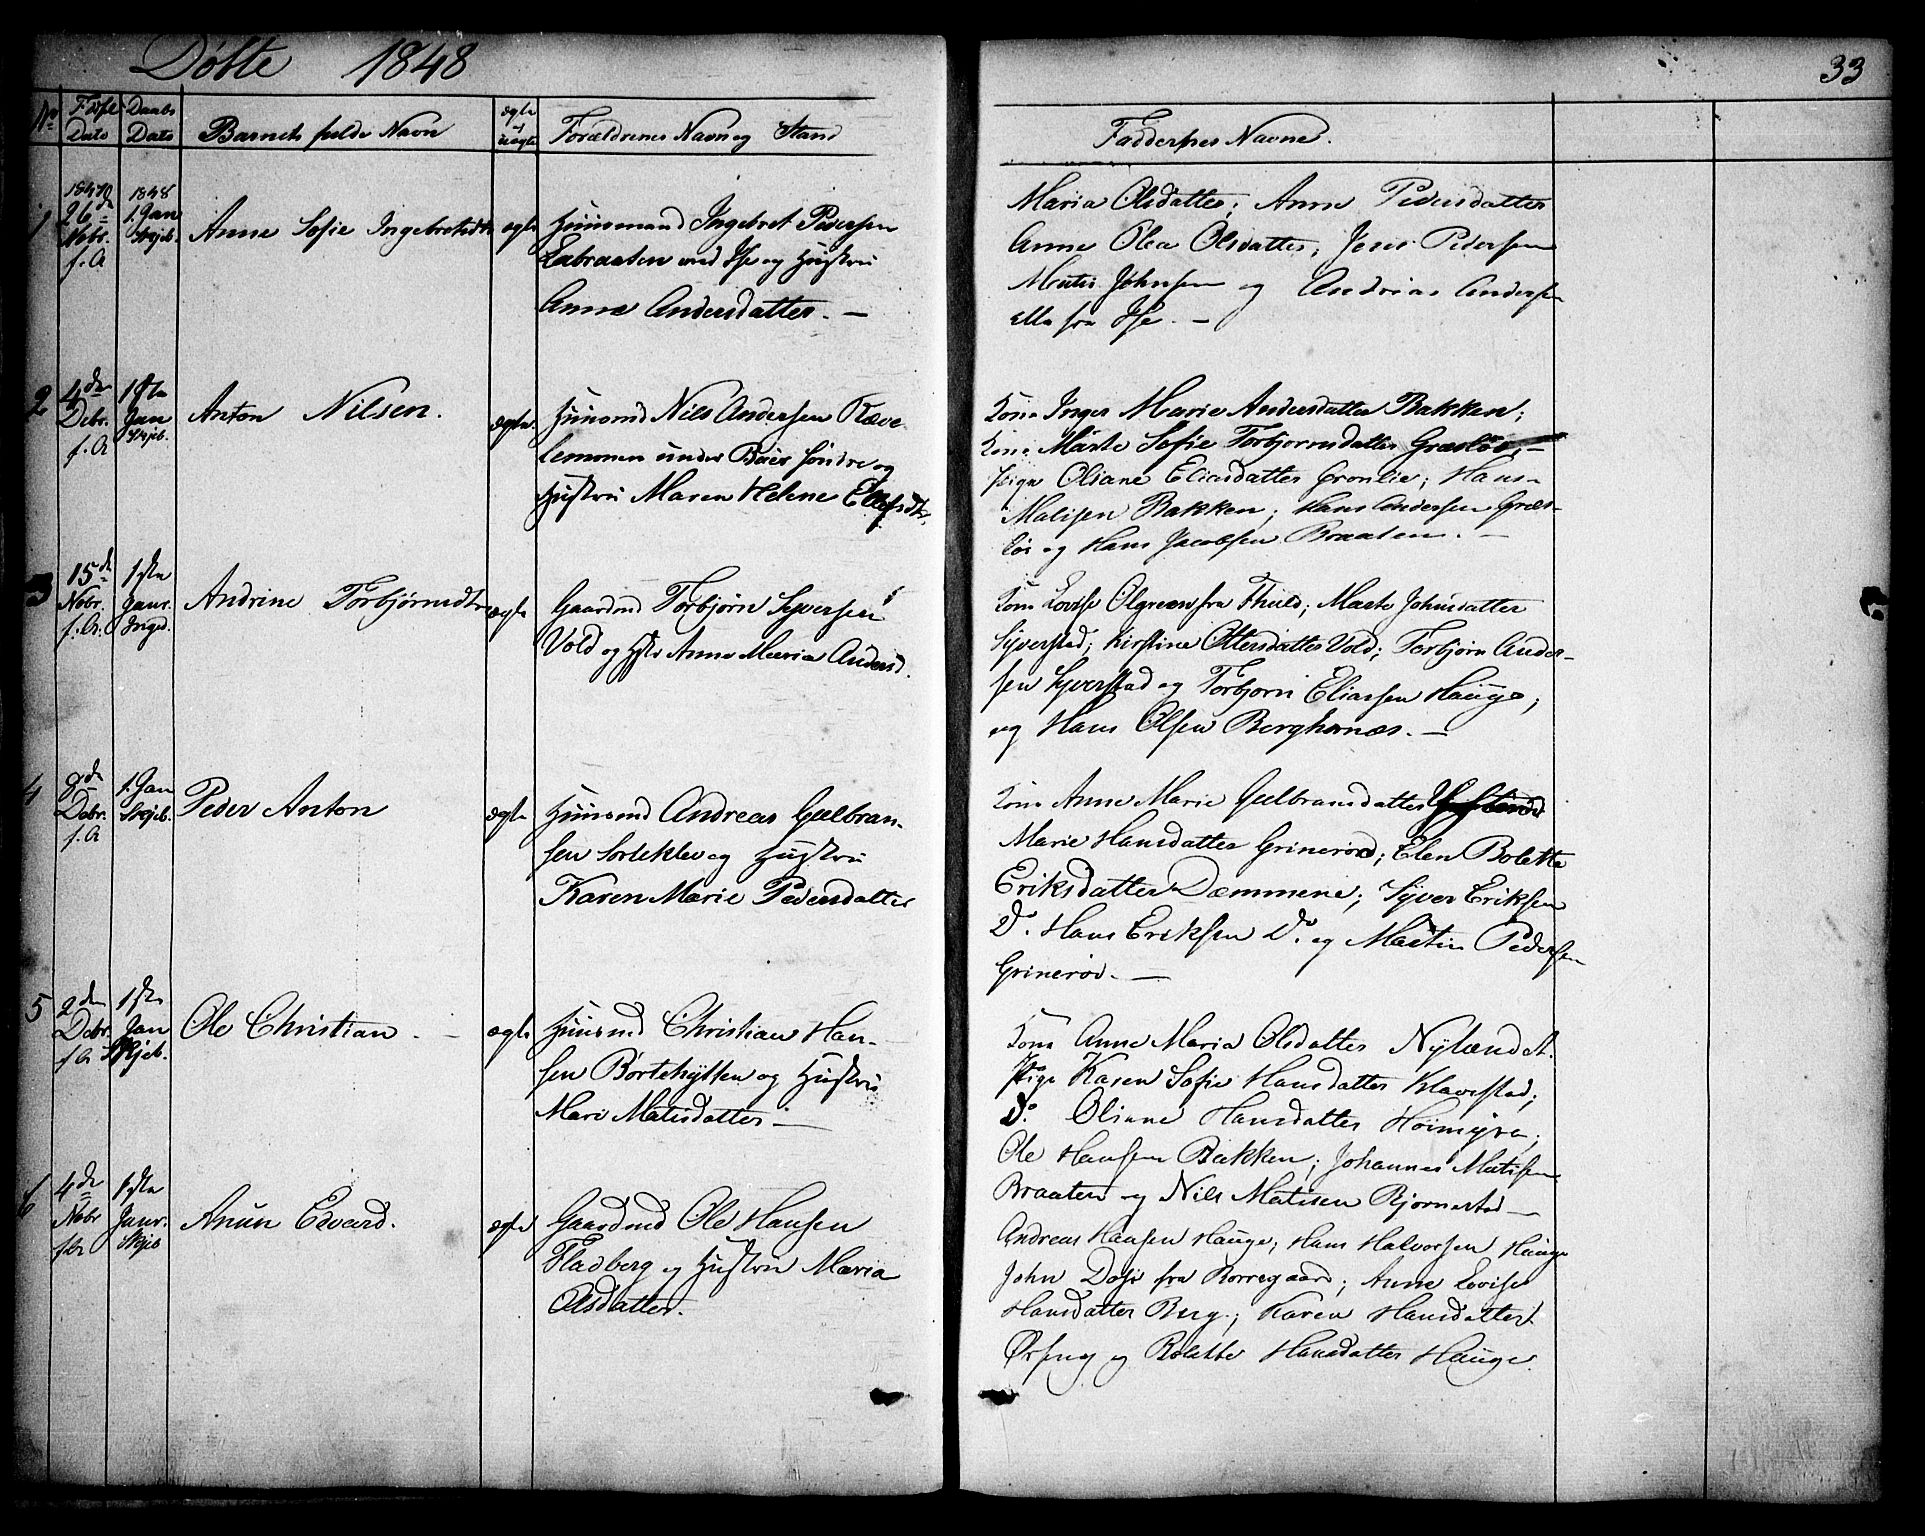 Døbte 1848
33
No Fødsl Dato Daabs Dato Barnets fulde Navn ægte uægte Forældrenes Navn og Stand
Fadderses Navne.
1 26de Nobr. f. A 1848 1. Jan Skjeb. Anne Sofie Ingebretsdtr ægte Huusmand Ingebret Pedersen
og Hustru
Anne Andersdatter. —
Maria Olsdatter; Anne Pedersdatter
Anne Olea Olsdatter; Jens Pedersen
Matis Johnsen og Andrias Andersen
alle fra
2 4de Debr. f. A 1ste Jan Skjeb. Anton Nilsen. ægte Huusmd Nils Andersen Ræve
lemonen under Bøer søndre og
Hustru Maren Helene Ellefsdtr.
Kone Inger Marie Andersdatter Bakken;
Kone Marte Sofie Torbjørnsdatter Græsløs; —
Pige Oliane Eliasdatter Grønlie; Hans
Matisen Bakken; Hans Andersen Græs-
løs og Hans Jacobsen Braaten. —
3 15de Nobr. f. A. 1ste Janr. Inged. Andrine Torbjørnsdtr ægte Gaardmd Torbjørn Syversen
Vold og Hstr Anne Maria Andersd.
Kone Lovise Olgreen fra Thuld; Marte Johnsdatter
Syverstad; Kirstine Ottersdatter Vold; Torbjørn Ander-
sen Syverstad og Torbjørn Eliassen Hauge;
og Hans Olsen Berghornæs. —
4 8de Debr. f. A 1. Jan Skjeb. Peder Anton ægte Huusmd Andreas Gulbran-
sen Sorleklev og Hustru
Karen Marie Pedersdatter
Kone Anne Marie Gulbransdatter
Marie Hansdatter Grinerød; Elen Bolette
Eriksdatter Dæmmene; Syver Eriksen
Do. Hans Eriksen Do. og Martin Pedersen
Grinerød. —
5 2den Debr. f A 1ste Jan Skjeb. Ole Christian. — ægte Huusmd Christian Han-
sen Børtehytten og Hustru
Mari Matisdatter —
Kone Anne Maria Olsdatter Nylændet.
Pige Karen Sofie Hansdatter Klavestad;
Do. Oliane Hansdatter Høimyra;
Ole Hansen Bakken; Johannes Matisen
Braaten og Nils Matisen Bjørnestad —
6 4de Nobr f A 1ste Janr. Skjeb Anun Edvard. ægte Gaardmd Ole Hansen
Fladberg og Hustru Maria
Olsdatter.
Andreas Hansen Hauge; Hans Halvorsen Hauge
John Dosi fra Borregaard; Anne Lovise
Hansdatter Berg; Karen Hansdatter
og Bolette Hansdatter Hauge.